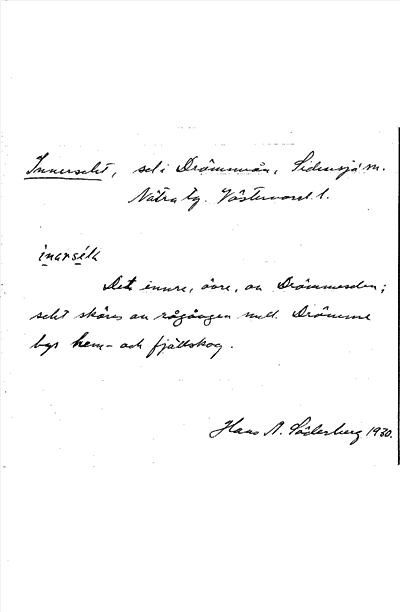 Innerselet, sel i Drömmeån, Sidensjö sn.
Nätra tg. Västernorrl. l.
inarsélt
Det innre, övre, av Drömmeselen;
selet skäres av rågången mell. Drömme
bys hem- och fjällskog.
Hans A. Söderberg 1930.